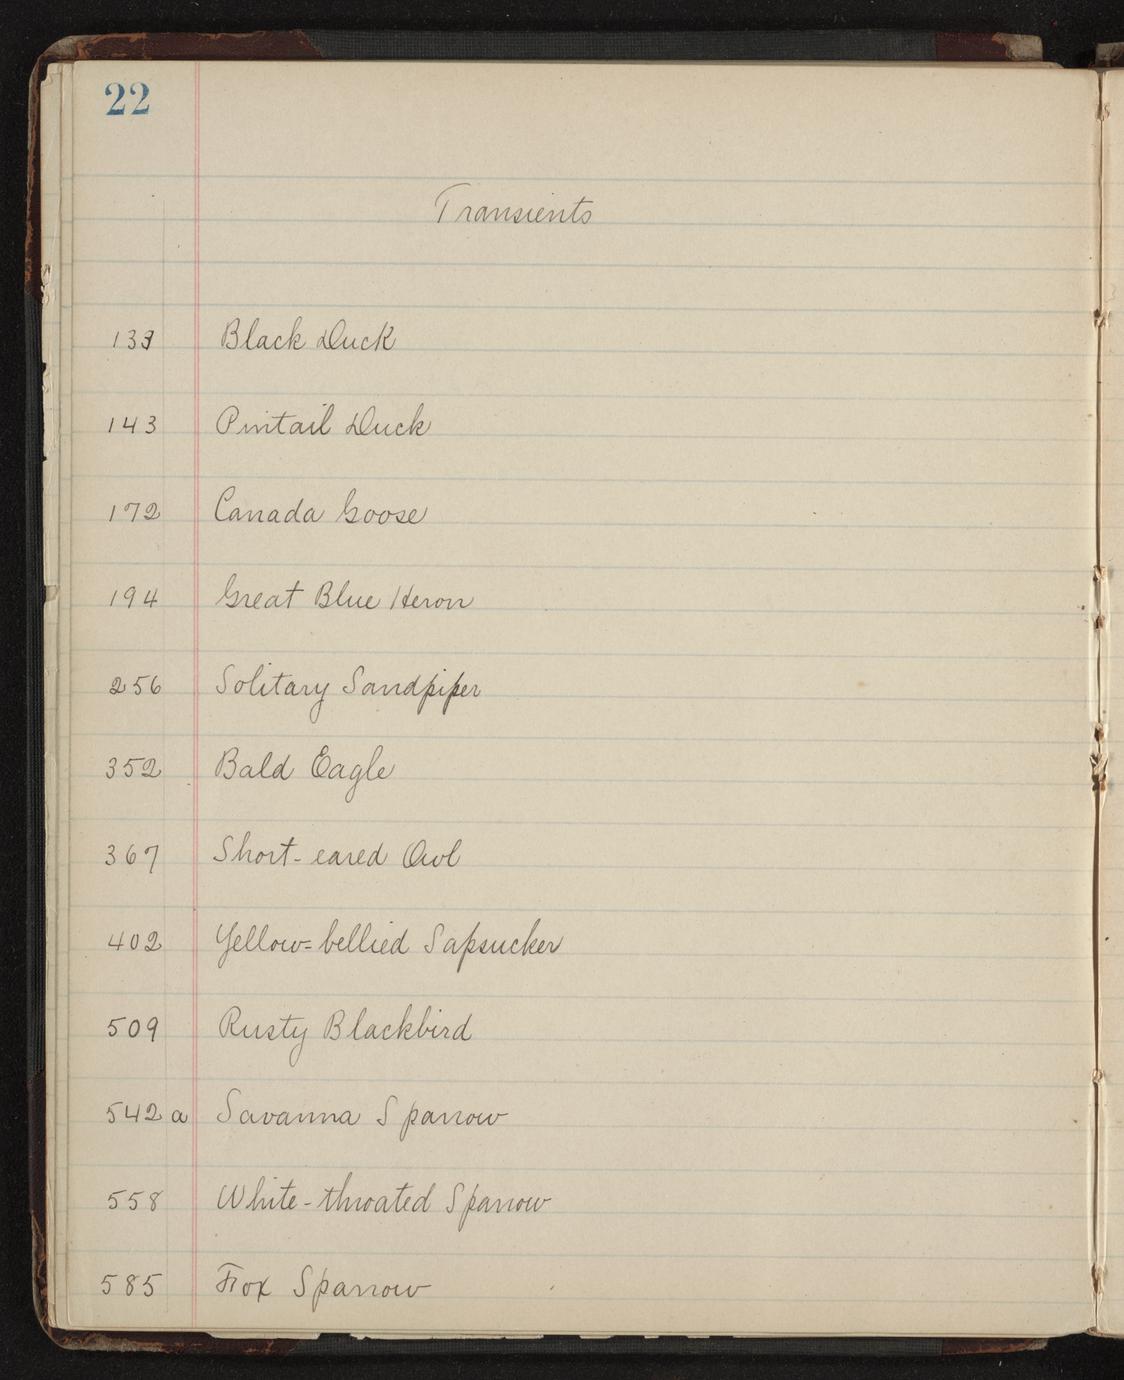 22
Transients
133 Black Duck
143 Pintail Duck
172 Canada Goose
194 Great Blue Heron
256 Solitary Sandpiper
352 Bald Eagle
367 Short-eared Owl
402 Yellow=bellied Sapsucker
509 Rusty Blackbird
542 a Savanna Sparrow
558 White-throated Sparrow
585 Fox Sparrow